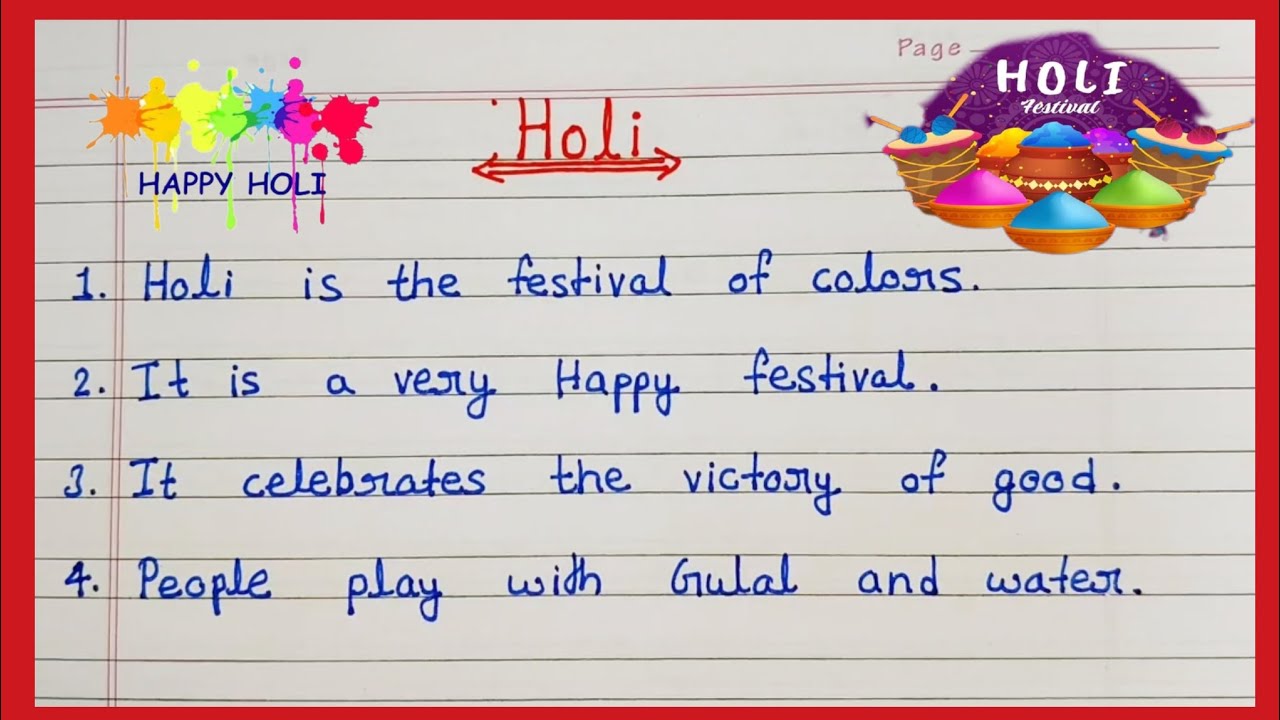 Page
HOLI
Festival
HAPPY HOLI
Holi
1. Holi is the festival of colors.
2. It is a very Happy festival.
3. It celebrates the victory of good.
4. People play with Gulal and water.